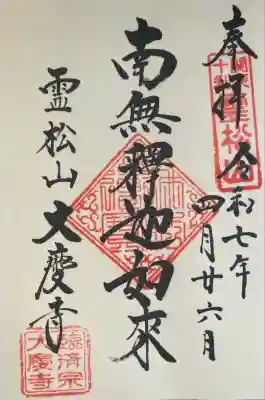 奉拝
令和七年
四月廿六月
南無釋迦如來
霊松山大慶寺
臨済宗
大慶寺